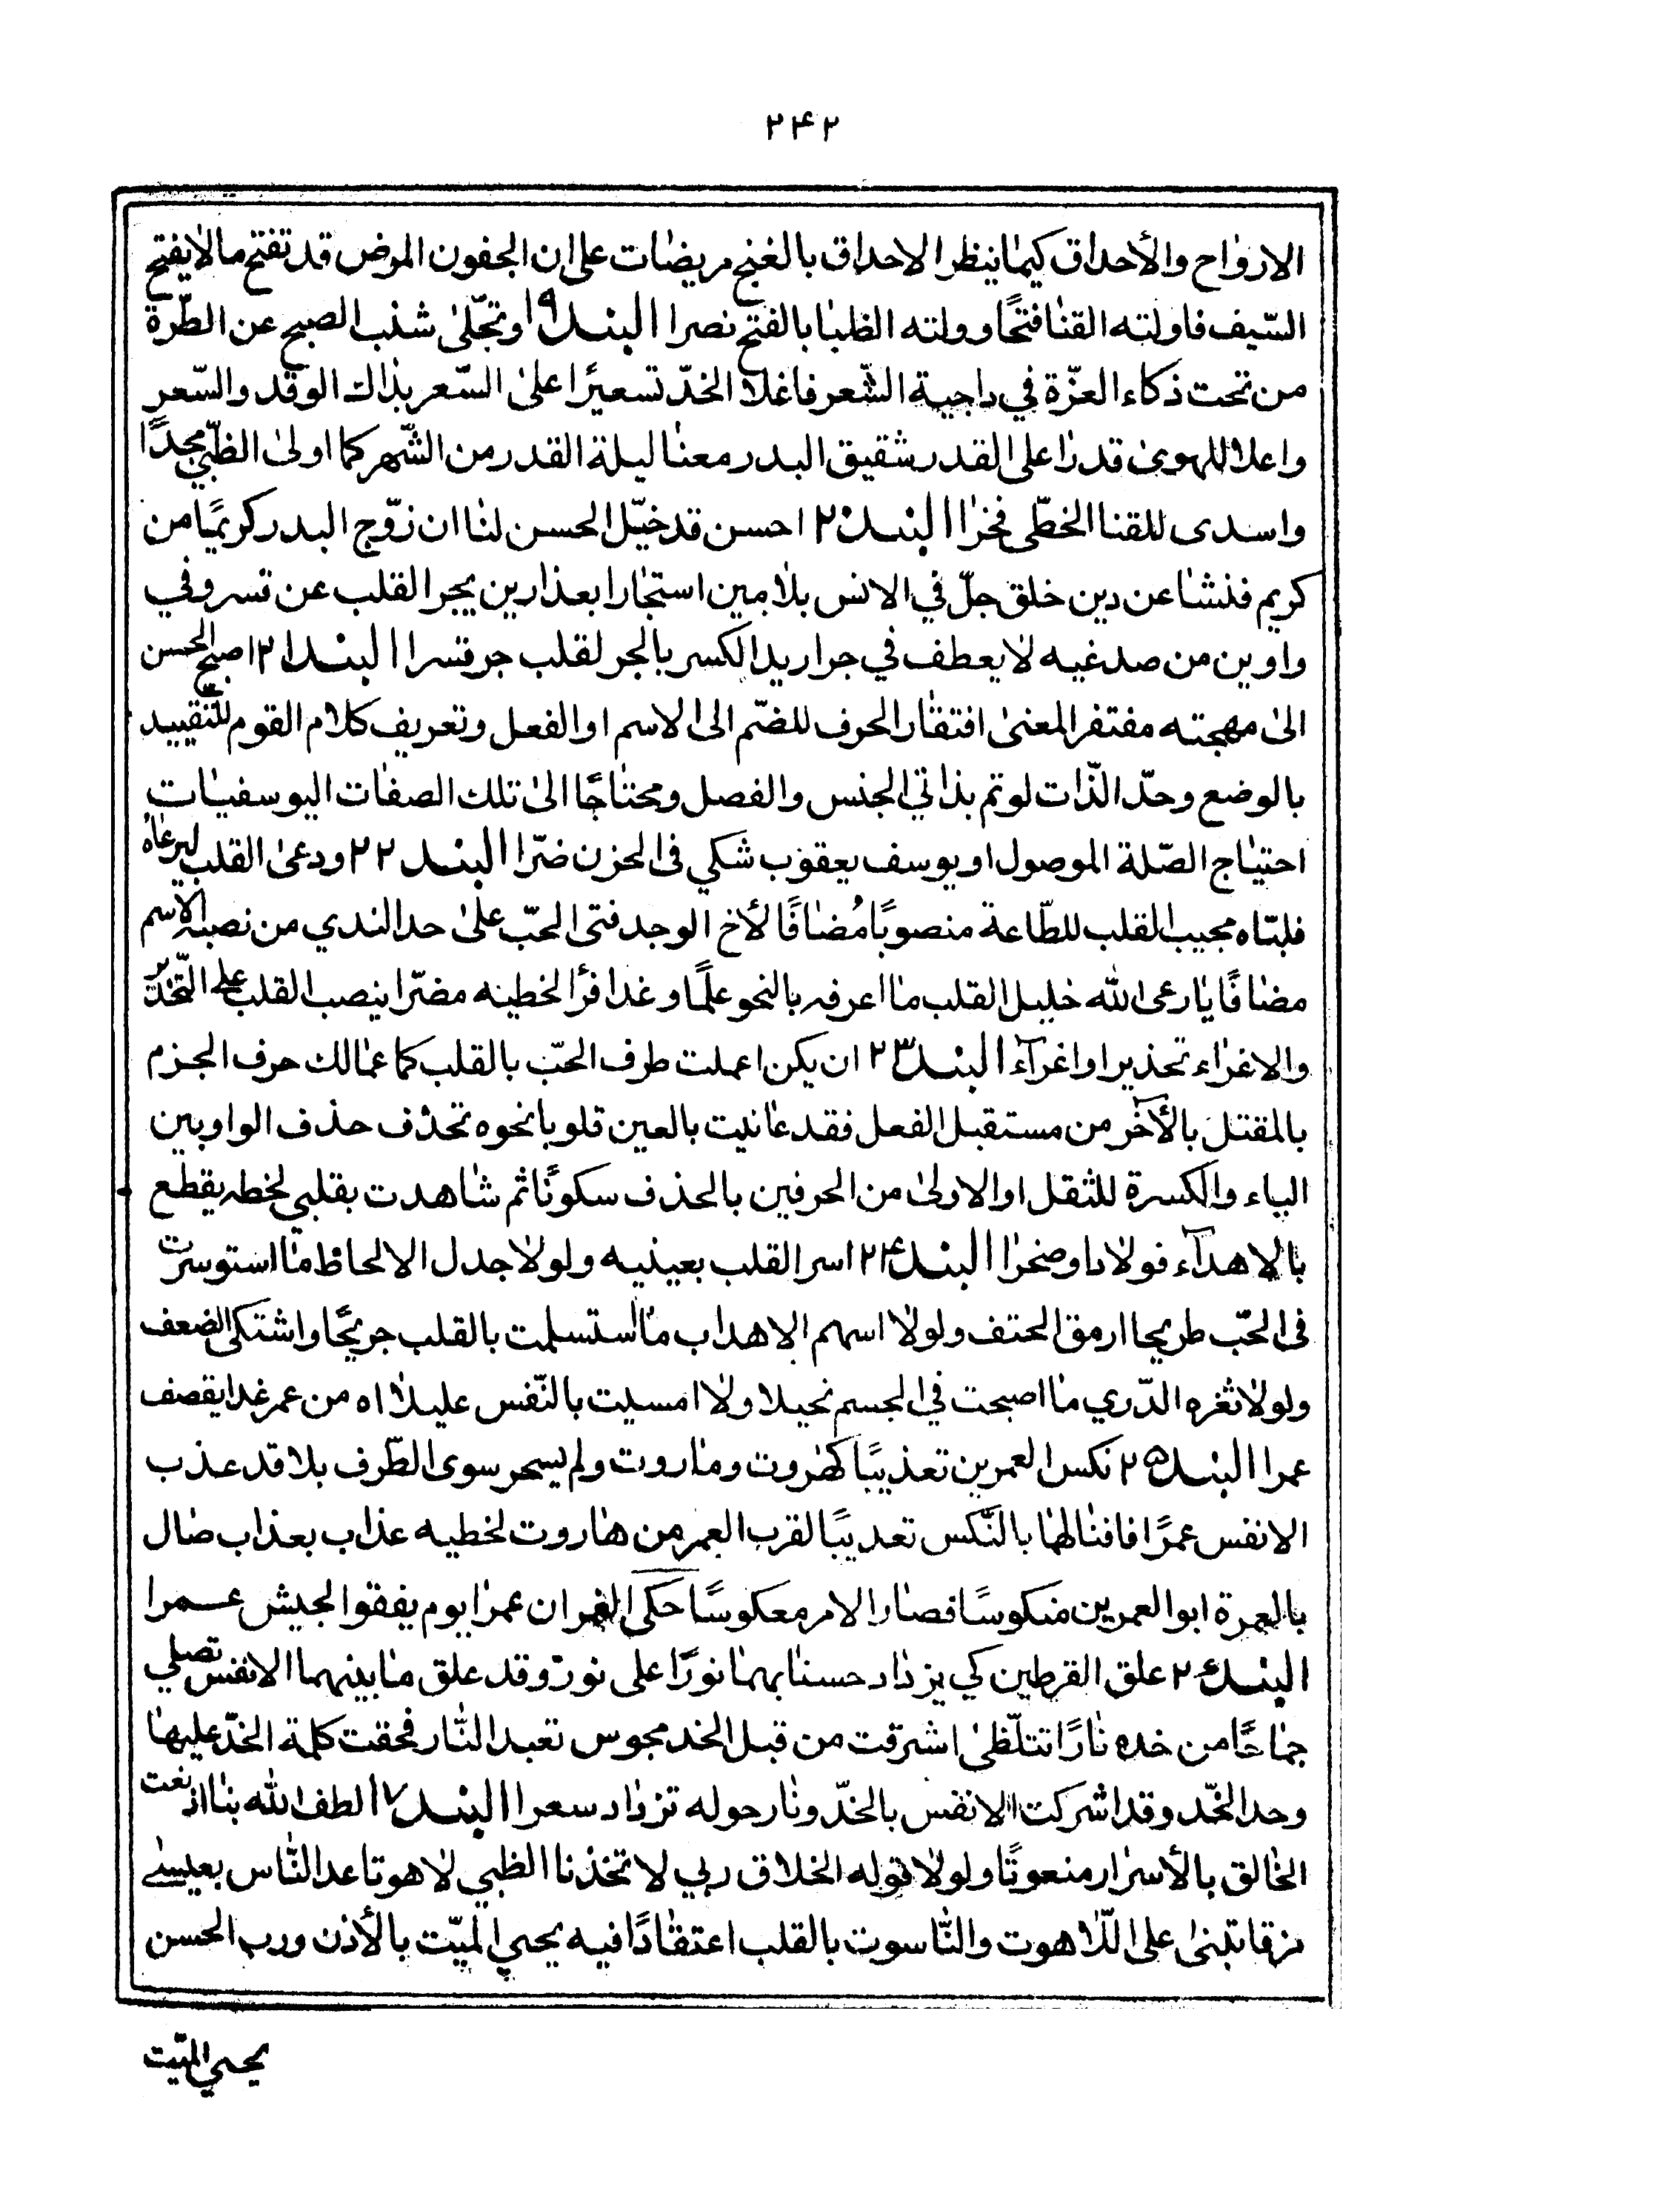 ۲۴۲
الارواح والأحداق كيما ينظر الاحداق بالغنج مريضات على ان الجفون المرض قد تفتح مالا يفتح
السّيف فاولته القنا فتحًا وولته الظبا بالفتح نصرا البند ۱۹ وتجّلىٰ شنب الصبح عن الطّرة
من تحت ذكاء العزّة في داجية الشّعر فاغلا الخدّ تسعيرًا علىٰ السّعر بذاك الوقد والسّعر
واعلا للهوىٰ قدرًا على القدر شقيق البدر معنا ليلة القدر من الشّهر كما اولىٰ الظّبي مجدًا
واسدى للقنا الخطّى فخرًا البند ۲۰ احسن قد خيّل الحسن لنا ان زوّج البدر كريمًا من
كريم فنشا عن دين خلق جلّ في الانس بلامين استجارا بعذارين يجر القلب عن قسر وفي
واوين من صدغيه لا يعطف في جرا يريد الكسر بالجر لقلب جر قسرا البند ۲۱ اصبح الحسن
الىٰ مهجته مفتقر المعنىٰ افتقار الحرف للضّم الىٰ الاسم او الفعل وتعريف كلام القوم للتّقييد
بالوضع وحدّ الذّات لو تم بذاتي الجنس والفصل ومحتاجًا الىٰ تلك الصفات اليوسفيات
احتياج الصّلة الموصول او يوسف يعقوب شكي فى الحزن ضرّا البند ۲۲ ودعىٰ القلب ليرعاهُ
فلبّاه مجيب القلب للطّاعة منصوبًا مُضافًا لأخ الوجد فتى الحبّ علىٰ حد الندي من نصبه الاسم
مضافًا يا رعى الله خليل القلب ما اعرفه بالنحو علمًا وغدا فرأ لخطيئه مضرّا ينصب القلب على التّحذر
والاغراء تحذيرا واغرآءً البند ۲۳ ان يكن اعملت طرف الحبّ بالقلب كما عمالك حرف الجزم
بالمقتل بالآخر من مستقبل الفعل فقد عانيت بالعين قلوبا نحوه تحذف حذف الواو بين
الياء والكسرة للثقل او الاولىٰ من الحرفين بالحذف سكونًا ثم شاهدت بقلبي لخطه يقطع
بالاهدآء فولادا وصخرا البند ۲۴ اسر القلب بعينيه ولولا جدل الالحاظ ما استوسرت
فى الحّب طريحا ارمق الحتف ولولا اسهم الاهداب ما استسلمت بالقلب جريحًا واشتكى الضعف
ولولا ثغره الدّري ما اصبحت في الجسم نحيلا ولا امسيت بالنّفس عليلا اه من عمر غدا يقصف
عمرا البند ۲۵ نكس العمرين تعذيبًا كهروت وماروت ولم يسحر سوى الطّرف بلا قد عذب
الانفس عمرًا فافنالها بالنّكس تعديبًا لقرب العمر من هاروت لخطيه عذاب بعذاب صال
بالعمرة ابو العمرين منكوسًا فصار الامر معكوسًا حكى العمران عمرا يوم يفقوا الجيش عمرا
البند ۲۶ علق القرطين كي يزداد حسنا بهما نورًا على نورٌ وقد علق ما بينهما الانفس تصلي
جماحًا من خده نارًا تتلّظىٰ اشرقت من قبل الخد مجوس تعبد النّار فحقت كلمة الخدّ عليها
وحد الخّد وقد اشركت الانفس بالخدّ ونار حوله تزداد سعرا البند ۷ الطف الله بنا اذ نعت
الخالق بالأسرار منعوتًا ولولا قوله الخلاق ربي لاتخذنا الظبي لاهوتا عد النّاس بعيسىٰ
مزقا تبنىٰ على اللّاهوت والنّاسوت بالقلب اعتقادًا فيه يحيي الميّت بالأذن ورب الحسن
يحيي الميّت